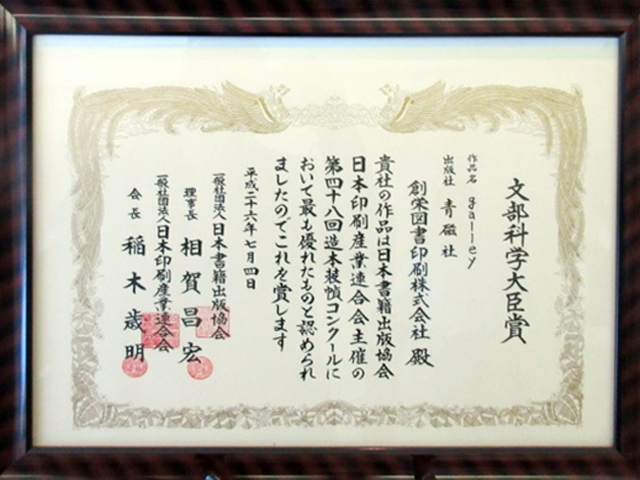 文部科学大臣賞
作品名 galley
出版社 青磁社
創栄図書印刷株式会社 殿
貴社の作品は日本書籍出版協会
日本印刷産業連合会主催の
第四十八回造本装幀コンクールに
おいて最も優れたものと認められ
ましたのでこれを賞します
平成二十六年七月四日
一般社団法人日本書籍出版協会
理事長 相賀昌宏
一般社団法人日本印刷産業連合会
会長 稲木歳明